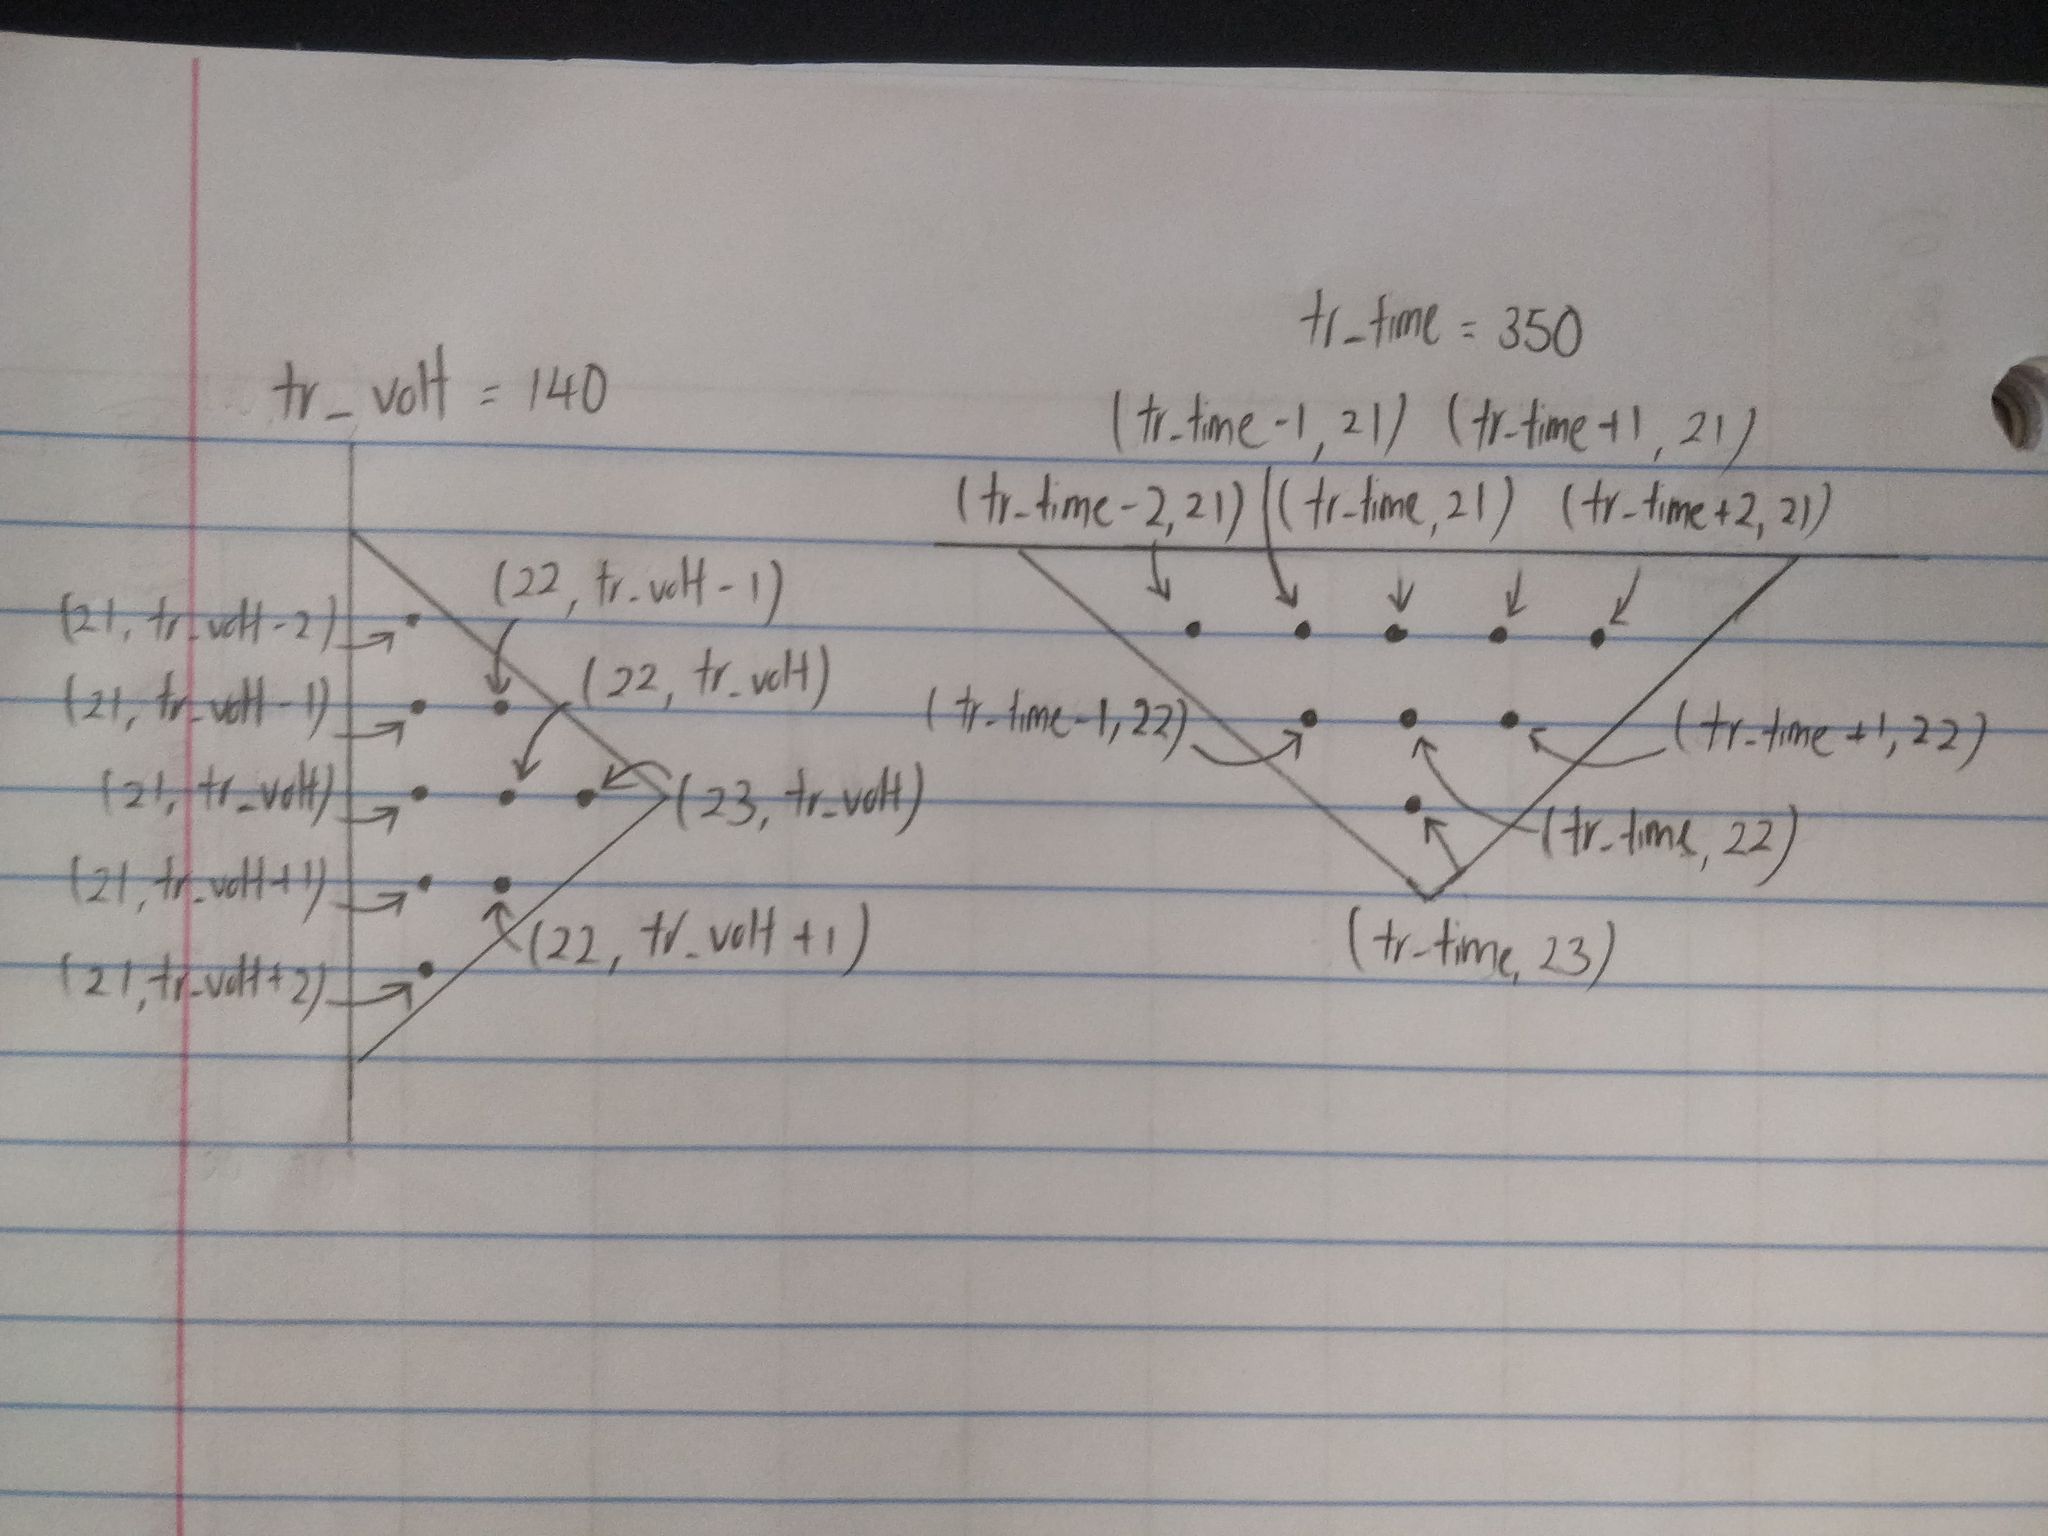 tr_volt = 140
(22, tr_volt - 1)
(21, tr_volt-2)
(22, tr_volt)
(21, tr_volt-1)
(21, tr_volt)
(23, tr_volt)
(21, tr_volt+1)
(22, tr_volt +1)
(21, tr_volt+2)
tr_time = 350
(tr_time -1, 21) (tr_time +1, 21)
(tr_time - 2, 21) (tr_time, 21) (tr_time +2, 21)
(tr_time -1, 22) (tr_time +1, 22)
(tr_time, 22)
(tr_time, 23)